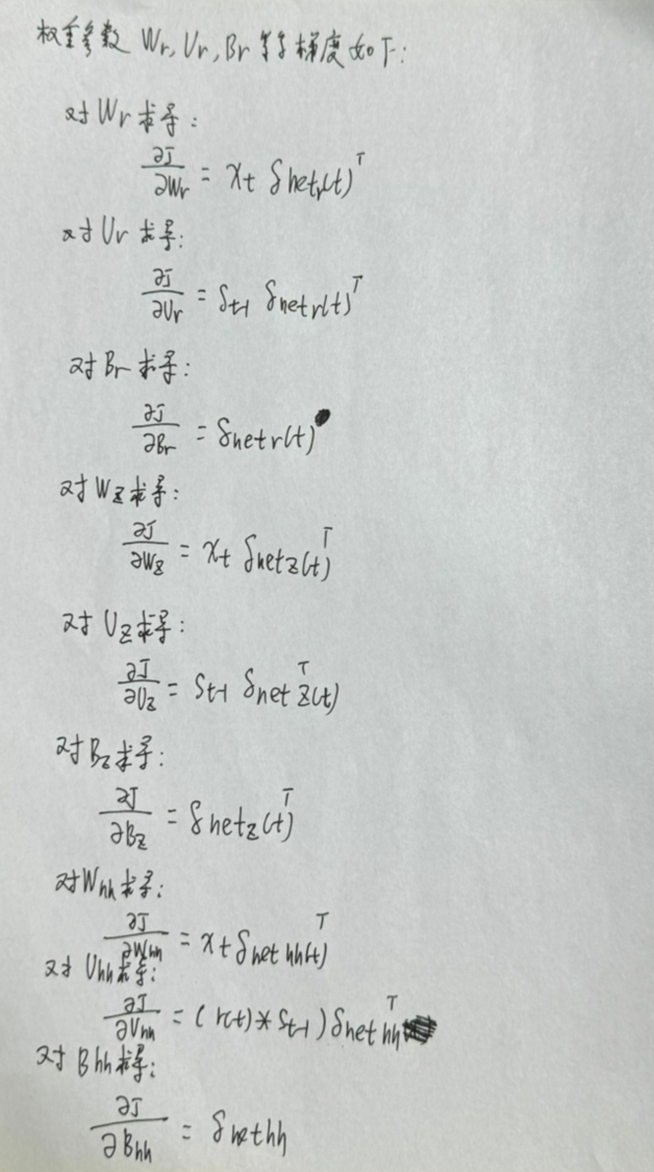 权重参数 Wr, Ur, Br 等等梯度如下:
对Wr求导:
∂J/∂Wr = xt δnetr(t)^T
对Ur求导:
∂J/∂Ur = St-1 δnetr(t)^T
对Br求导:
∂J/∂Br = δnetr(t)
对Wz求导:
∂J/∂Wz = xt δnetz(t)^T
对Uz求导:
∂J/∂Uz = St-1 δnetz(t)^T
对Bz求导:
∂J/∂Bz = δnetz(t)^T
对Whh求导:
∂J/∂Whh = xt δnethh(t)^T
对Uhh求导:
∂J/∂Uhh = (r(t)*St-1) δnethh^T
对Bhh求导:
∂J/∂Bhh = δnethh